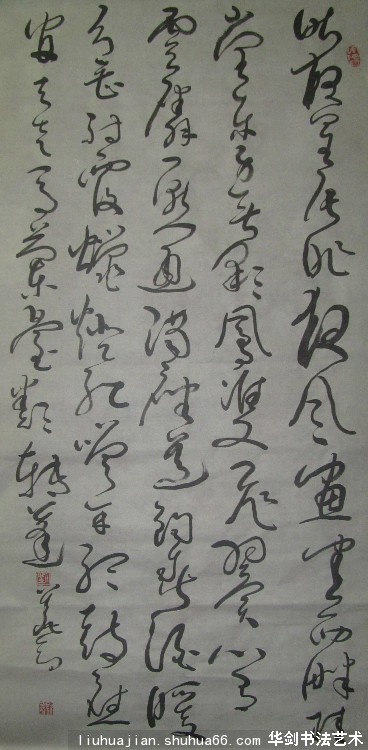 昨夜星辰昨夜風畫樓西畔桂
堂東身無彩鳳雙飛翼心有
靈犀一點通隔座送鉤春酒暖
分曹射覆蠟燈紅嗟余聽鼓應
官去走馬蘭臺類轉蓬
华剑书法艺术
liuhuajian.shuhua66.com